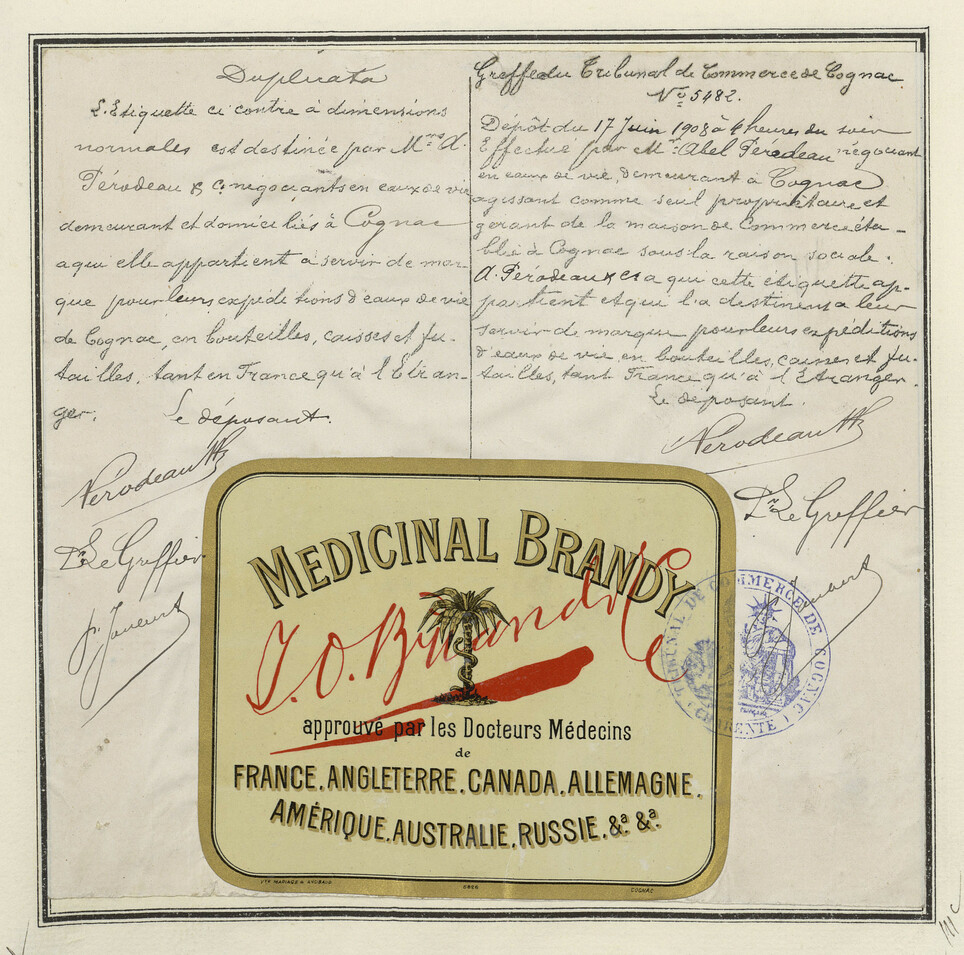 Duplicata
L'Etiquette ci contre à dimensions
normales est destinée par Mrs A.
Pérodeau & Co négociants en eaux de vie
demeurant et domiciliés à Cognac
a qui elle appartient à servir de mar-
que pour leurs expéditions d'eaux de vie
de Cognac, en bouteilles, caisses et fu-
tailles, tant en France qu'à l'Etran-
ger.
Le déposant.
Pérodeau
Le Greffier
Greffe du Tribunal de Commerce de Cognac.
No 5482.
Dépôt du 17 Juin 1908 à 4 heures du soir
Effectué par Mr Abel Pérodeau négociant
en eaux de vie, demeurant à Cognac
agissant comme seul propriétaire et
gérant de la maison de Commerce éta-
blie à Cognac sous la raison sociale.
A. Pérodeau & Co a qui cette étiquette ap-
partient et qui l'a destinens a leur
servir de marque pour leurs expéditions
d'eaux de vie en bouteilles, caisses et fu-
tailles, tant France qu'à l'Etranger.
Le déposant.
Pérodeau
Le Greffier
MEDICINAL BRANDY
J.O. Brandi & Co
approuvé par les Docteurs Médecins
de
FRANCE. ANGLETERRE. CANADA. ALLEMAGNE.
AMÉRIQUE. AUSTRALIE. RUSSIE. &a &a.
COGNAC
TRIBUNAL DE COMMERCE DE COGNAC
(CHARENTE)